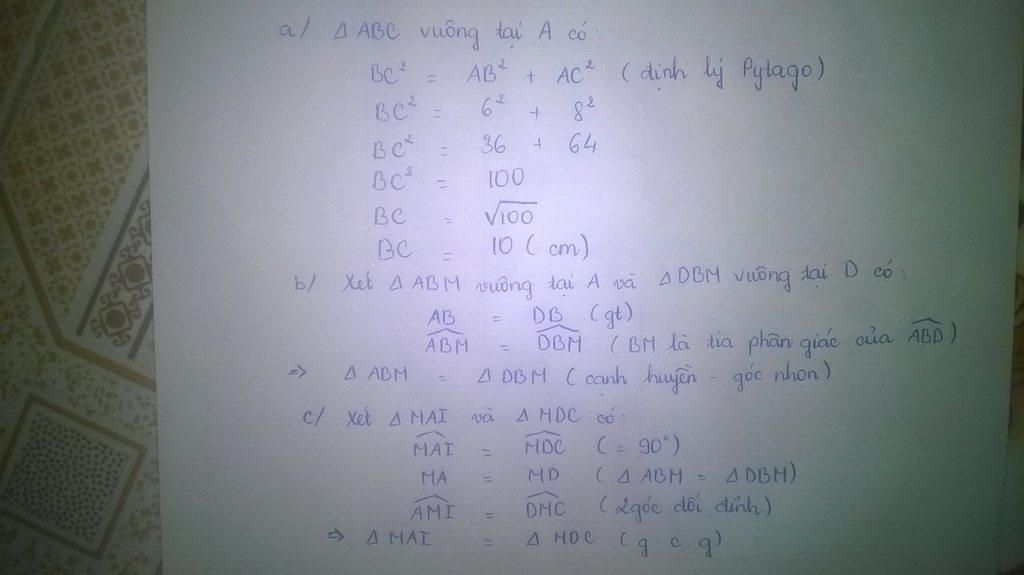 a/ Δ ABC vuông tại A có:
BC² = AB² + AC² (định lý Pytago)
BC² = 6² + 8²
BC² = 36 + 64
BC² = 100
BC = √100
BC = 10 (cm)
b/ Xét Δ ABM vuông tại A và Δ DBM vuông tại D có:
AB = DB (gt)
\widehat{ABM} = \widehat{DBM} (BM là tia phân giác của \widehat{ABD})
=> Δ ABM = Δ DBM (cạnh huyền - góc nhọn)
c/ Xét Δ MAI và Δ MDC có:
\widehat{MAI} = \widehat{MDC} (= 90°)
MA = MD (Δ ABM = Δ DBM)
\widehat{AMI} = \widehat{DMC} (2góc đối đỉnh)
=> Δ MAI = Δ MDC (g.c.g)